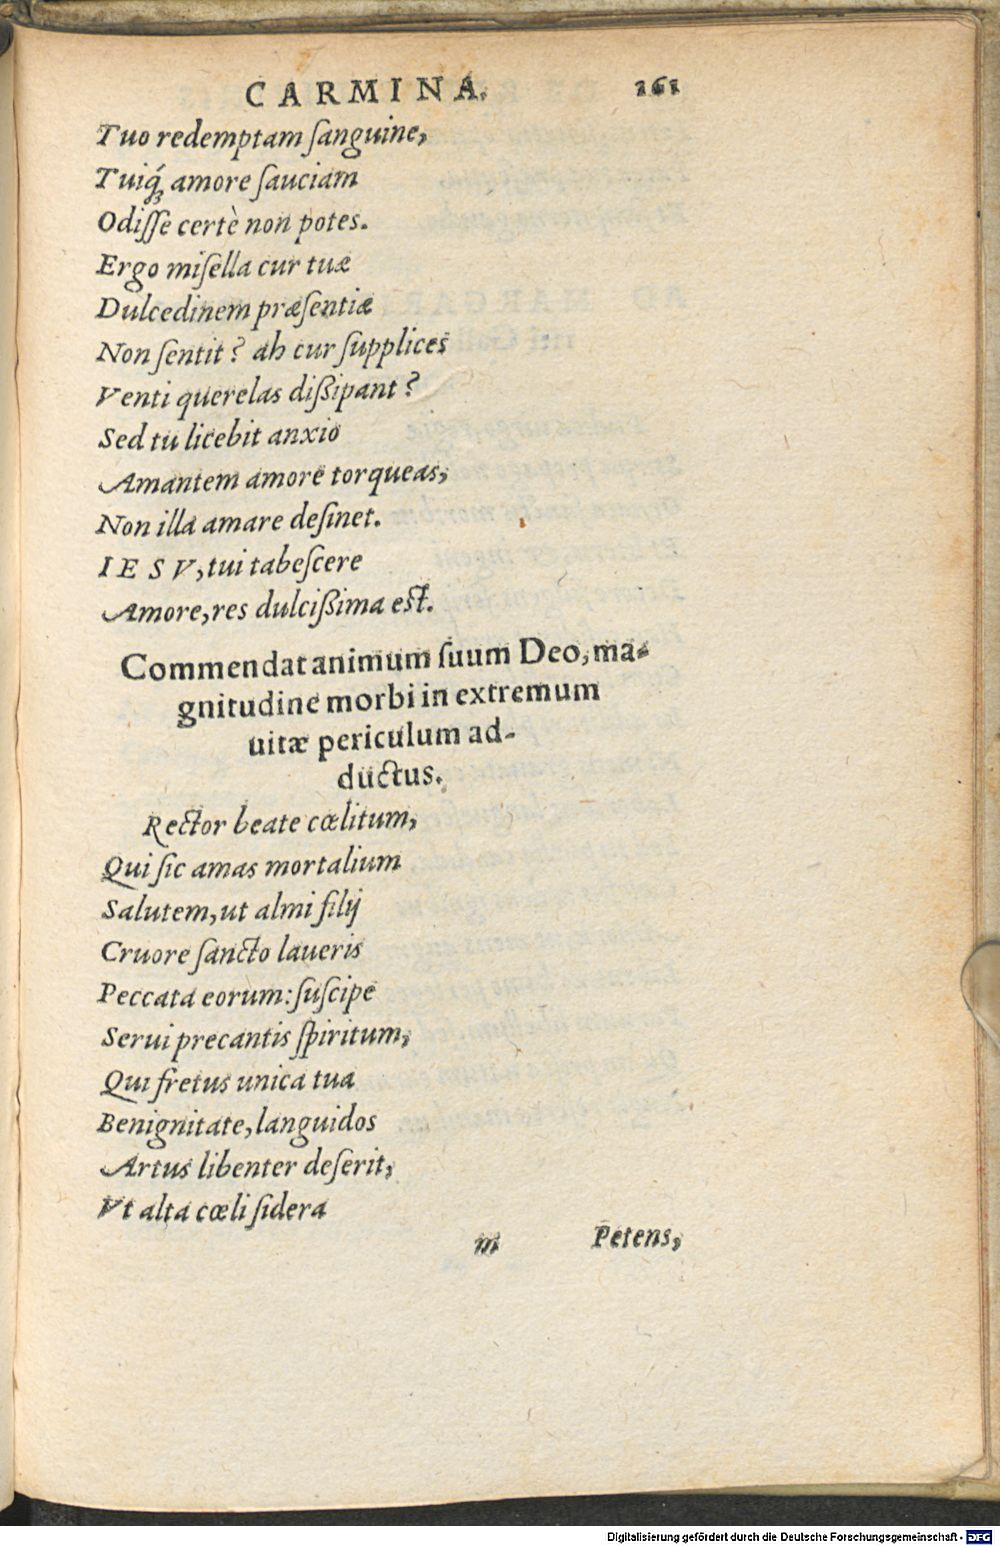 CARMINA. 161
Tuo redemptam ſanguine,
Tuiq́; amore ſauciam
Odiſſe certè non potes.
Ergo miſella cur tuæ
Dulcedinem præſentiæ
Non ſentit? ah cur ſupplices
Venti querelas diſſipant?
Sed tu licebit anxio
Amantem amore torqueas,
Non illa amare deſinet.
IESV, tui tabeſcere
Amore, res dulciſſima eſt.
Commendat animum ſuum Deo, ma-
gnitudine morbi in extremum
uitæ periculum ad-
ductus.
Rector beate cœlitum,
Qui ſic amas mortalium
Salutem, ut almi filij
Cruore ſancto laueris
Peccata eorum: ſuſcipe
Serui precantis ſpiritum,
Qui fretus unica tua
Benignitate, languidos
Artus libenter deſerit,
Vt alta cœli ſidera
m Petens,
Digitalisierung gefördert durch die Deutsche Forschungsgemeinschaft - DFG